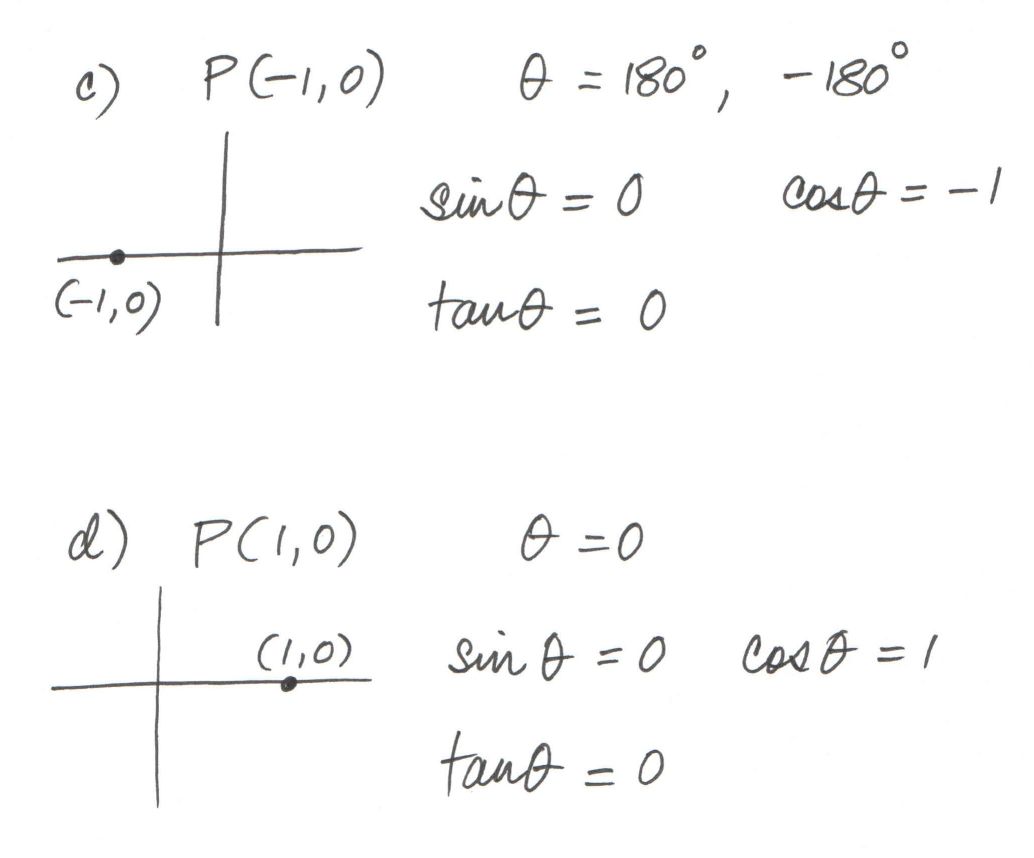 c) P(-1,0) θ = 180°, -180°
sinθ = 0 cosθ = -1
(-1,0)
tanθ = 0
d) P(1,0) θ =0
(1,0)
sinθ = 0 cosθ = 1
tanθ = 0